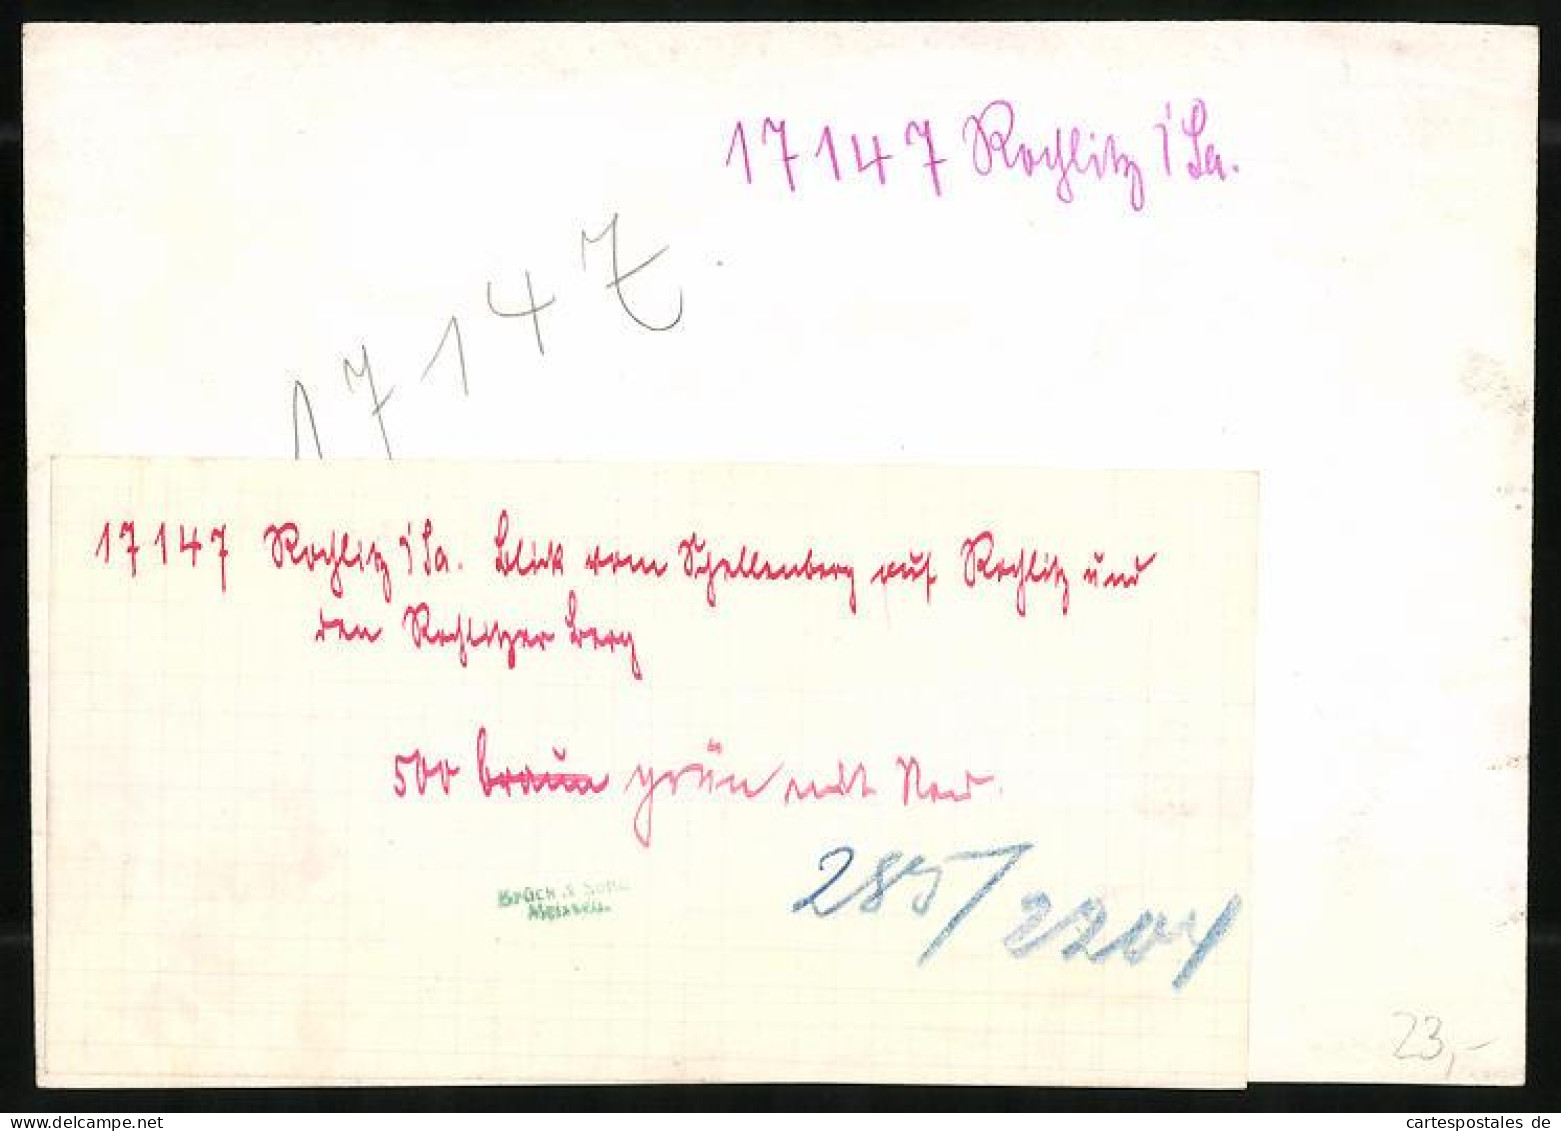 17147 Rochlitz i Sa.
17147
17147 Rochlitz i Sa. Blick vom Schellenberg auf Rochlitz und
den Rochlitzer Berg
500 braun grün mit Neu.
BRÜCK & SOHN
MEISSEN.
285/2204
23,-
cartespostales.de